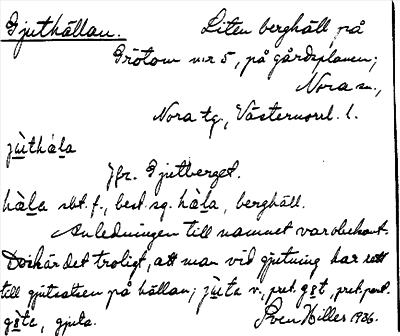 Gjuthällan. Liten berghäll på
Grötom n:r 5, på gårdsplanen;
Nora sn.,
Nora tg., Västernorrl. l.
jùthála
Jfr. Gjutberget.
hàla sbt. f., best. sg. hàla, berghäll.
Anledningen till namnet var obekant.
Dock är det troligt, att man vid gjutning har satt
till gjutsatsen på hällan; jùta v., pret. gøt, pret. part.
gøte, gjuta. Sven Hiller 1936.